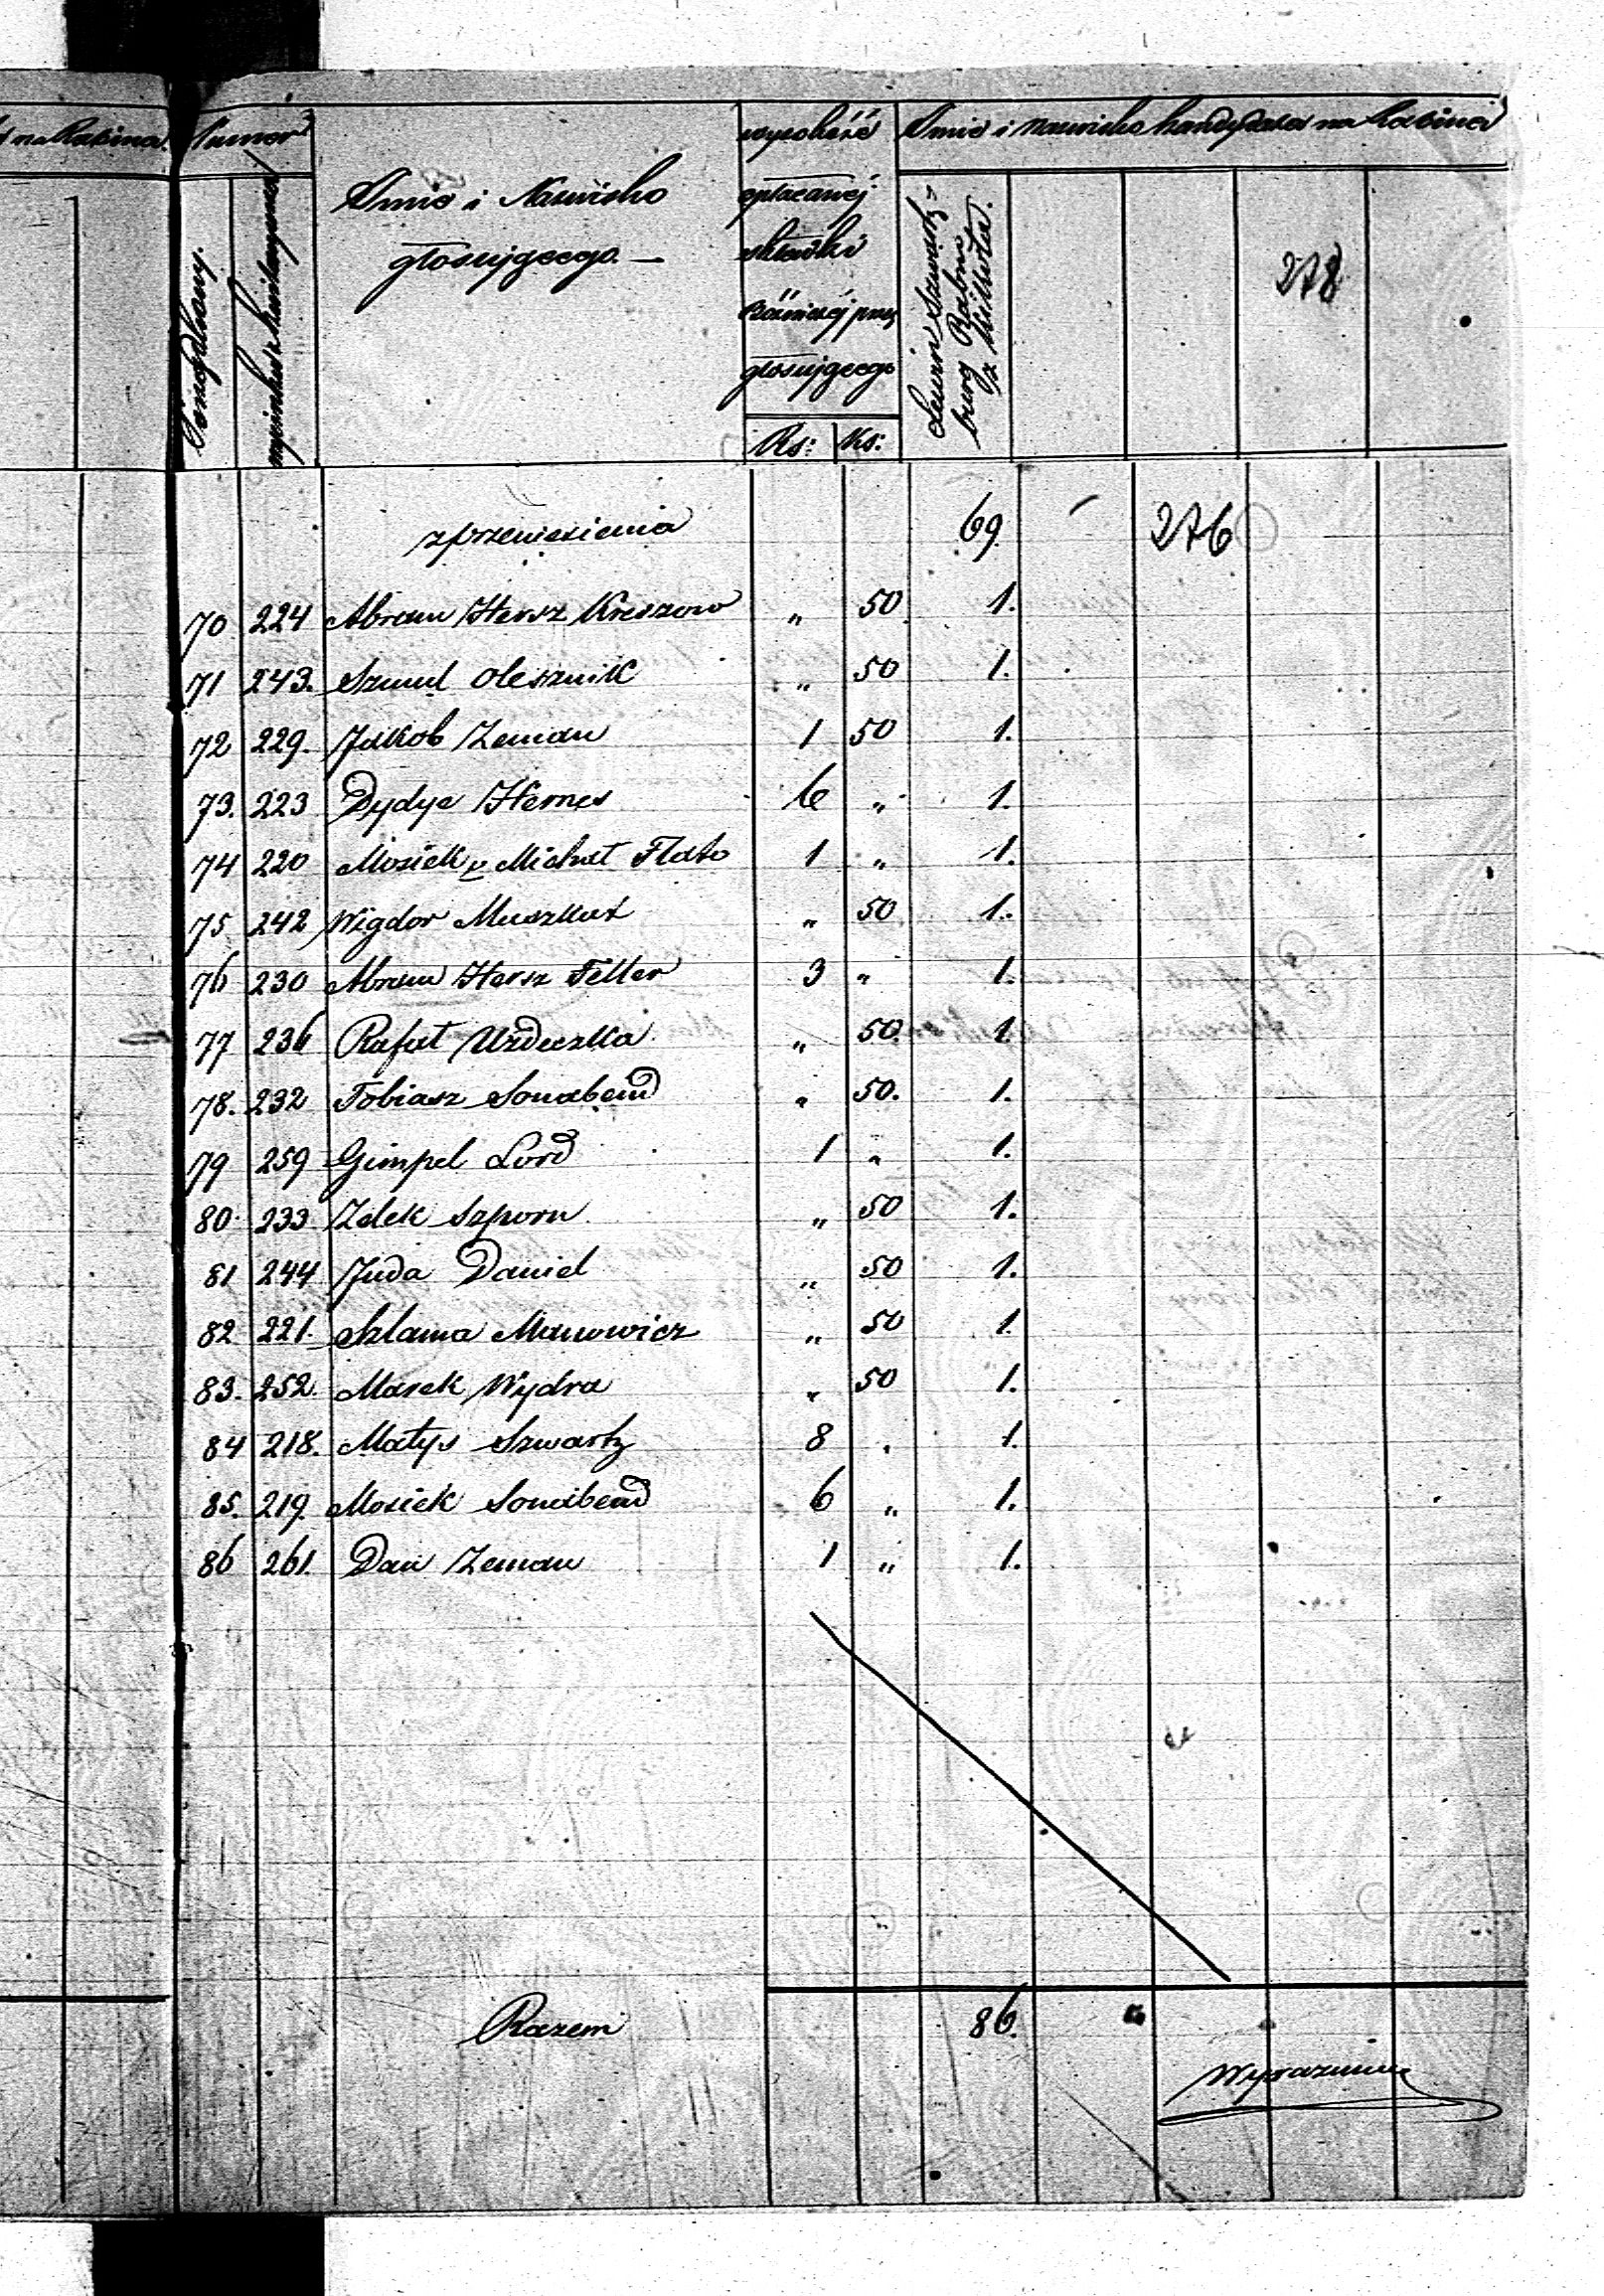 na Rabina
Numer
Porządkowy.
Imie i Nazwisko
głosującego. —
wysokość
opłacanéj
składki
Bóżniczéj przez
głosującego
Rs: Ks:
Imie i nazwisko kandydata na Rabina
Lewin Szwartz=
burg Rabin
z
278
z przeniesienia 69 276
70 224 Abram Hersz Kreszow „ 50 1.
71 243. Szmul Olesznik „ 50 1.
72 229. Jakob Zeman 1 50 1.
73. 223 Dydye Hernes 6 „ 1.
74 220 Mosiek v Michał Flato 1 „ 1.
75 242 Wigdor Muszkat „ 50 1.
76 230 Abram Hersz Feller 3 „ 1.
77 236 Rafał Uzdeczka „ 50. 1.
78. 232 Tobiasz Sonabend „ 50. 1.
79 259 Gimpel Lord 1 „ 1.
80 233 Zelek Szporn „ 50 1.
81 244 Juda Daniel „ 50 1.
82 221. Szlama Manowicz „ 50 1.
83. 252. Marek Wydra „ 50 1.
84 218. Matys Szwartz 8 „ 1.
85. 219. Mosiek Sonabend 6 „ 1.
86 261. Dan Zeman 1 „ 1.
Razem 86.